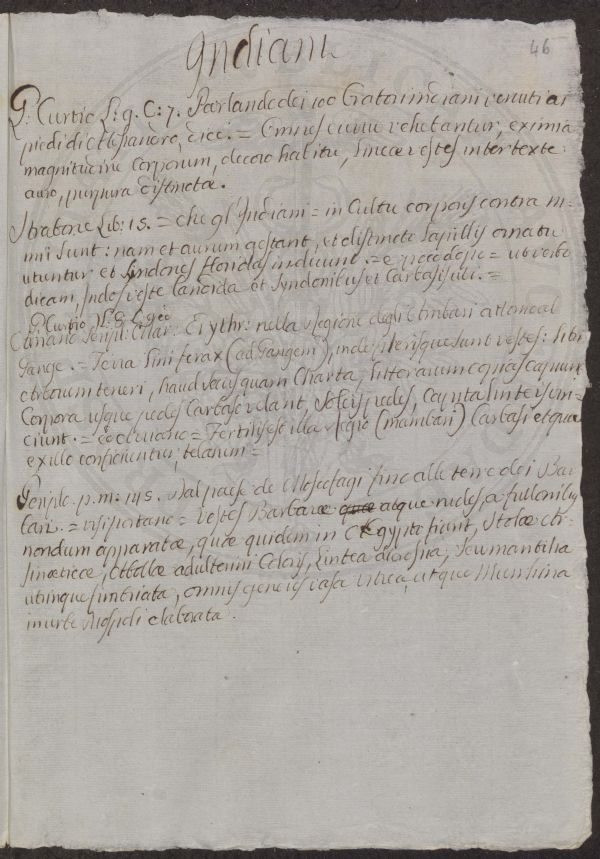 Indiani
46
Q. Curtio L. 9. C: 7. Parlando dei 100 Oratori Indiani venuti ai
piedi di Alessandro, dice: = Omnes curru vehebantur, eximia
magnitudine corporum, decoro habitu, lineæ vestes intertextæ
auro, purpura distinctæ.
Strabone Lib: 15. = che gl'Indiani = in Cultu corporis contra ni-
mii sunt: nam et aurum gestant, et distincto lapillis ornatu
utuntur et Sindones floridas induunt. = e poco dopo = ut verbo
dicam, Indos veste candida et Syndonibus et Carbasis uti. =
Q. Curtio L. 8
Arriano Peripl: Mar: Erythr: nella Regione degli intorno al
Gange. = Terra lini ferax (ad Gangem), inde plerisque sunt vestes: libri
arborum teneri, haud secus quam Charta, litterarum capiunt
Corpora usque pedes Carbaso velant, Soleis pedes, Capita linteis vin-
ciunt. = Arriano = Fertilis est illa regio (mambari) Carbasi et quæ
ex illo conficiuntur, telarum =
Periplo. p. m: 145. dal paese de Moscofagi fino alle terre dei Bar
bari. = vi si portano = vestes Barbaræ atque rudes, a fullonibus
nondum apparatæ, quæ quidem in Ægypto fiunt, Stolæ Ar-
sinoeticæ, Abollæ adulterini Coloris, Lintea, Seu mantilia
utrinque fimbriata, omnis generis vasa vitrea, atque Murrhina
in urbe Diospoli elaborata.